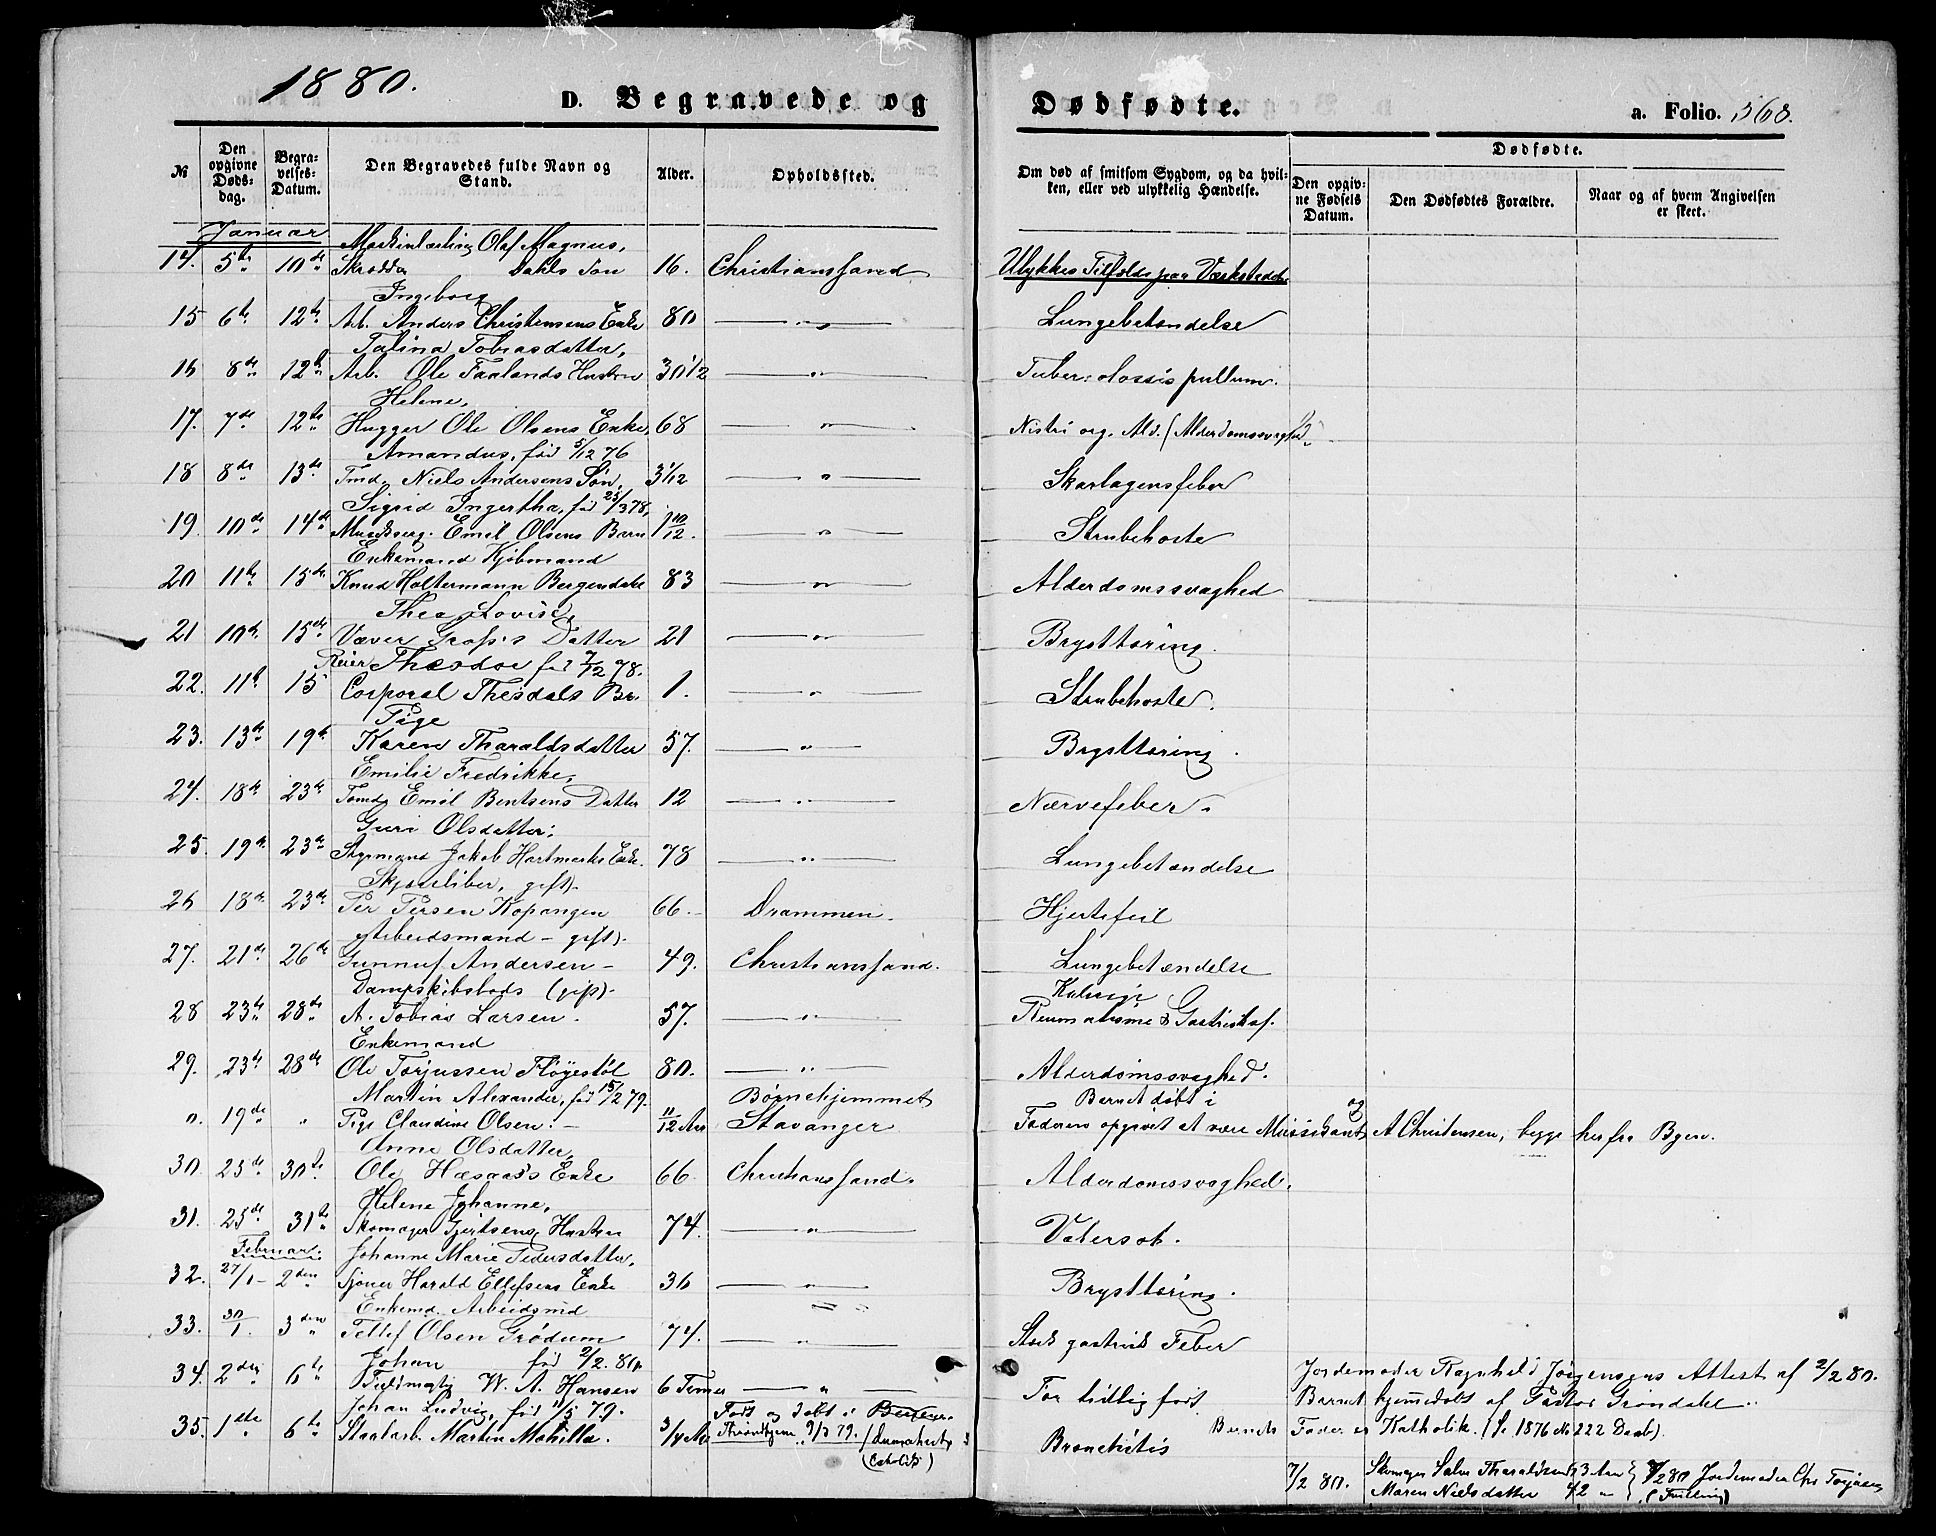 1880.
D. Begravede og Dødfødte.
a. Folio. 368.
№
Den opgivne Døds-dag.
Begra-velses-Datum.
Den Begravedes fulde Navn og Stand.
Alder.
Opholdssted.
Om død af smitsom Sygdom, og da hvil-ken, eller ved ulykkelig Hændelse.
Dødfødte.
Den opgiv-ne Fødsels Datum.
Den Dødfødtes Forældre.
Naar og af hvem Angivelsen er skeet.
Januar
Olaf Magnus,
14. 5te 10de Skrædder Dahls Søn 16. Christianssand Ulykkes Tilfælde paa Værkstedet
Ingeborg
15 6te 12te Arb. Anders Christensens Enke 80 — " — Lungebetændelse
Talina Tobiasdatter,
16 8de 12te Arb. Ole Faalands Hustru 30 1/2 — " —
Helene,
17. 7de 12te Hugger Ole Olsens Enke, 68 — " — org. Ald. (Alderdomssvaghed)
Amandus, fød 5/12 76
18 8de 13de Tmd. Niels Andersens Søn, 3 1/12 — " — Skarlagensfeber
Sigrid Ingertha, fd 25/3 78,
19. 10de 14de Emil Olsens Barn 1 10/12. — " — Strubehoste
Enkemand Kjøbmand
20 11te 15de Knud Holtermann Bergendahl 83 — " — Alderdomssvaghed
Thea Lovise,
21 10de 15de Væver Datter 21 — " — Brysttæring.
Reier Theodor fd 7/12 78.
22. 11te 15 Corporal Thesdals Br. 1. — " — Strubehoste.
Pige
23. 13de 19de Karen Tharaldsdatter 57. — " — Brysttæring.
Emilie Fredrikke,
24. 18de 23de Tømd. Emil Bentsens Datter 12 — " — Nærvefeber.
Guri Olsdatter,
25. 19de 23de Styrmand Jakob Hartmarks Enke. 78 — " — Lungebetændelse
gift).
26 18de 23de Per Persen Kopangen 66. Drammen. Hjertefeil
Arbeidsmand - gift).
27. 21de 26de Gunnuf Andersen - 49. Christianssand. Lungebetændelse
Dampskibsbaads (gift).
28 23de 28de A. Tobias Larsen. 57. — " — & Gastriskaf.
Enkemand
29. 23de 28de Ole Torjussen Fløyestøl 80. — " — Alderdomssvaghed.
Martin Alexander, fød 15/2 79. Børnehjemmet Barnet døbt i
". 19de " Pige Claudine Olsen. - 11/12 Aar Stavanger Faderen opgivet at være og A Christensen, begge her fra Byen.
Anne Olsdatter,
30. 25de 30te Ole Hæsaas's Enke 66 Christianssand. Alderdomssvaghed.
Helene Johanne,
31. 25de 31te Skomager Gjertsens Hustru 74. — " — Vatersot.
Februar. Johanne Marie Pedersdatter,
32. 27/1 - 2den Sjøner Harald Ellefsens Enke 36 — " — Brysttæring.
Enkemd. Arbeidsmd
33. 30/1. 3den Tellef Olsen Grødum 74. — " — Stærk gastrisk Feber
Johan fød 2/2. 80.
34. 2den 6te W. A. Hansen 6 Timer — " — For tidlig født
Jordemoder Ragnhild Jørgensens Attest af 2/2 80.
Barnet hjemmedøbt af Pastor Grøndahl.
Johan Ludvig, fød 11/5 79. Født og døbt i
35. 1ste 6te Staalarb. Martin Mahilla. 3/4 Aar Throndhjem 9/3 79. (Catholik) Bronchitis
Barnets Fader er Katholik. (Se 1876 No 222 Daab).
7/2 80. Skomager Salve Tharaldsen 43 Aar
Maren Nielsdatter 42 " 7/2 80 Jordemoder Chr Torjusen (Tvilling)